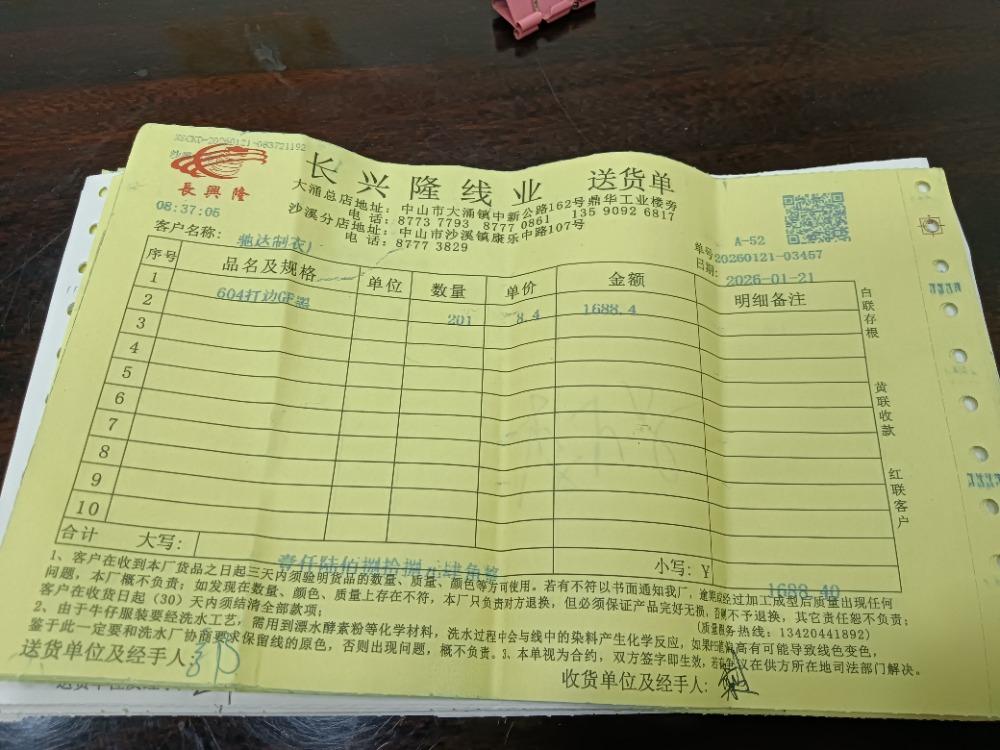 XSCKD-20260121-083721192
長興隆
长兴隆线业 送货单
大涌总店地址：中山市大涌镇中新公路162号鼎华工业楼旁
电话：8773 7793 8777 0861 135 9092 6817
沙溪分店地址：中山市沙溪镇康乐中路107号
电话：8777 3829
08:37:05
A-52
客户名称： 驰达制衣厂
单号 20260121-03457
日期： 2026-01-21
序号 品名及规格 单位 数量 单价 金额 明细备注
1 604打边 201 8.4 1688.4
2
3
4
5
6
7
8
9
10
白联存根
黄联收款
红联客户
合计 大写： 壹仟陆佰捌拾捌元肆角整 小写：Y 1688.40
1、客户在收到本厂货品之日起三天内须验明货品的数量、质量、颜色等方可使用。若有不符以书面通知我厂，经过加工成型后质量出现任何
问题，本厂概不负责；如发现在数量、颜色、质量上存在不符，本厂只负责对方退换，但必须保证产品完好无损，否则不予退换，其它责任恕不负责；
客户在收货日起（30）天内须结清全部款项； (质量服务热线：13420441892)
2、由于牛仔服装要经洗水工艺，需用到漂水酵素粉等化学材料，洗水过程中会与线中的染料产生化学反应，如果高有可能导致线色变色，
鉴于此一定要和洗水厂协商要求保留线的原色，否则出现问题，概不负责。3、本单视为合约，双方签字即生效，若有争议在供方所在地司法部门解决。
送货单位及经手人：
收货单位及经手人：